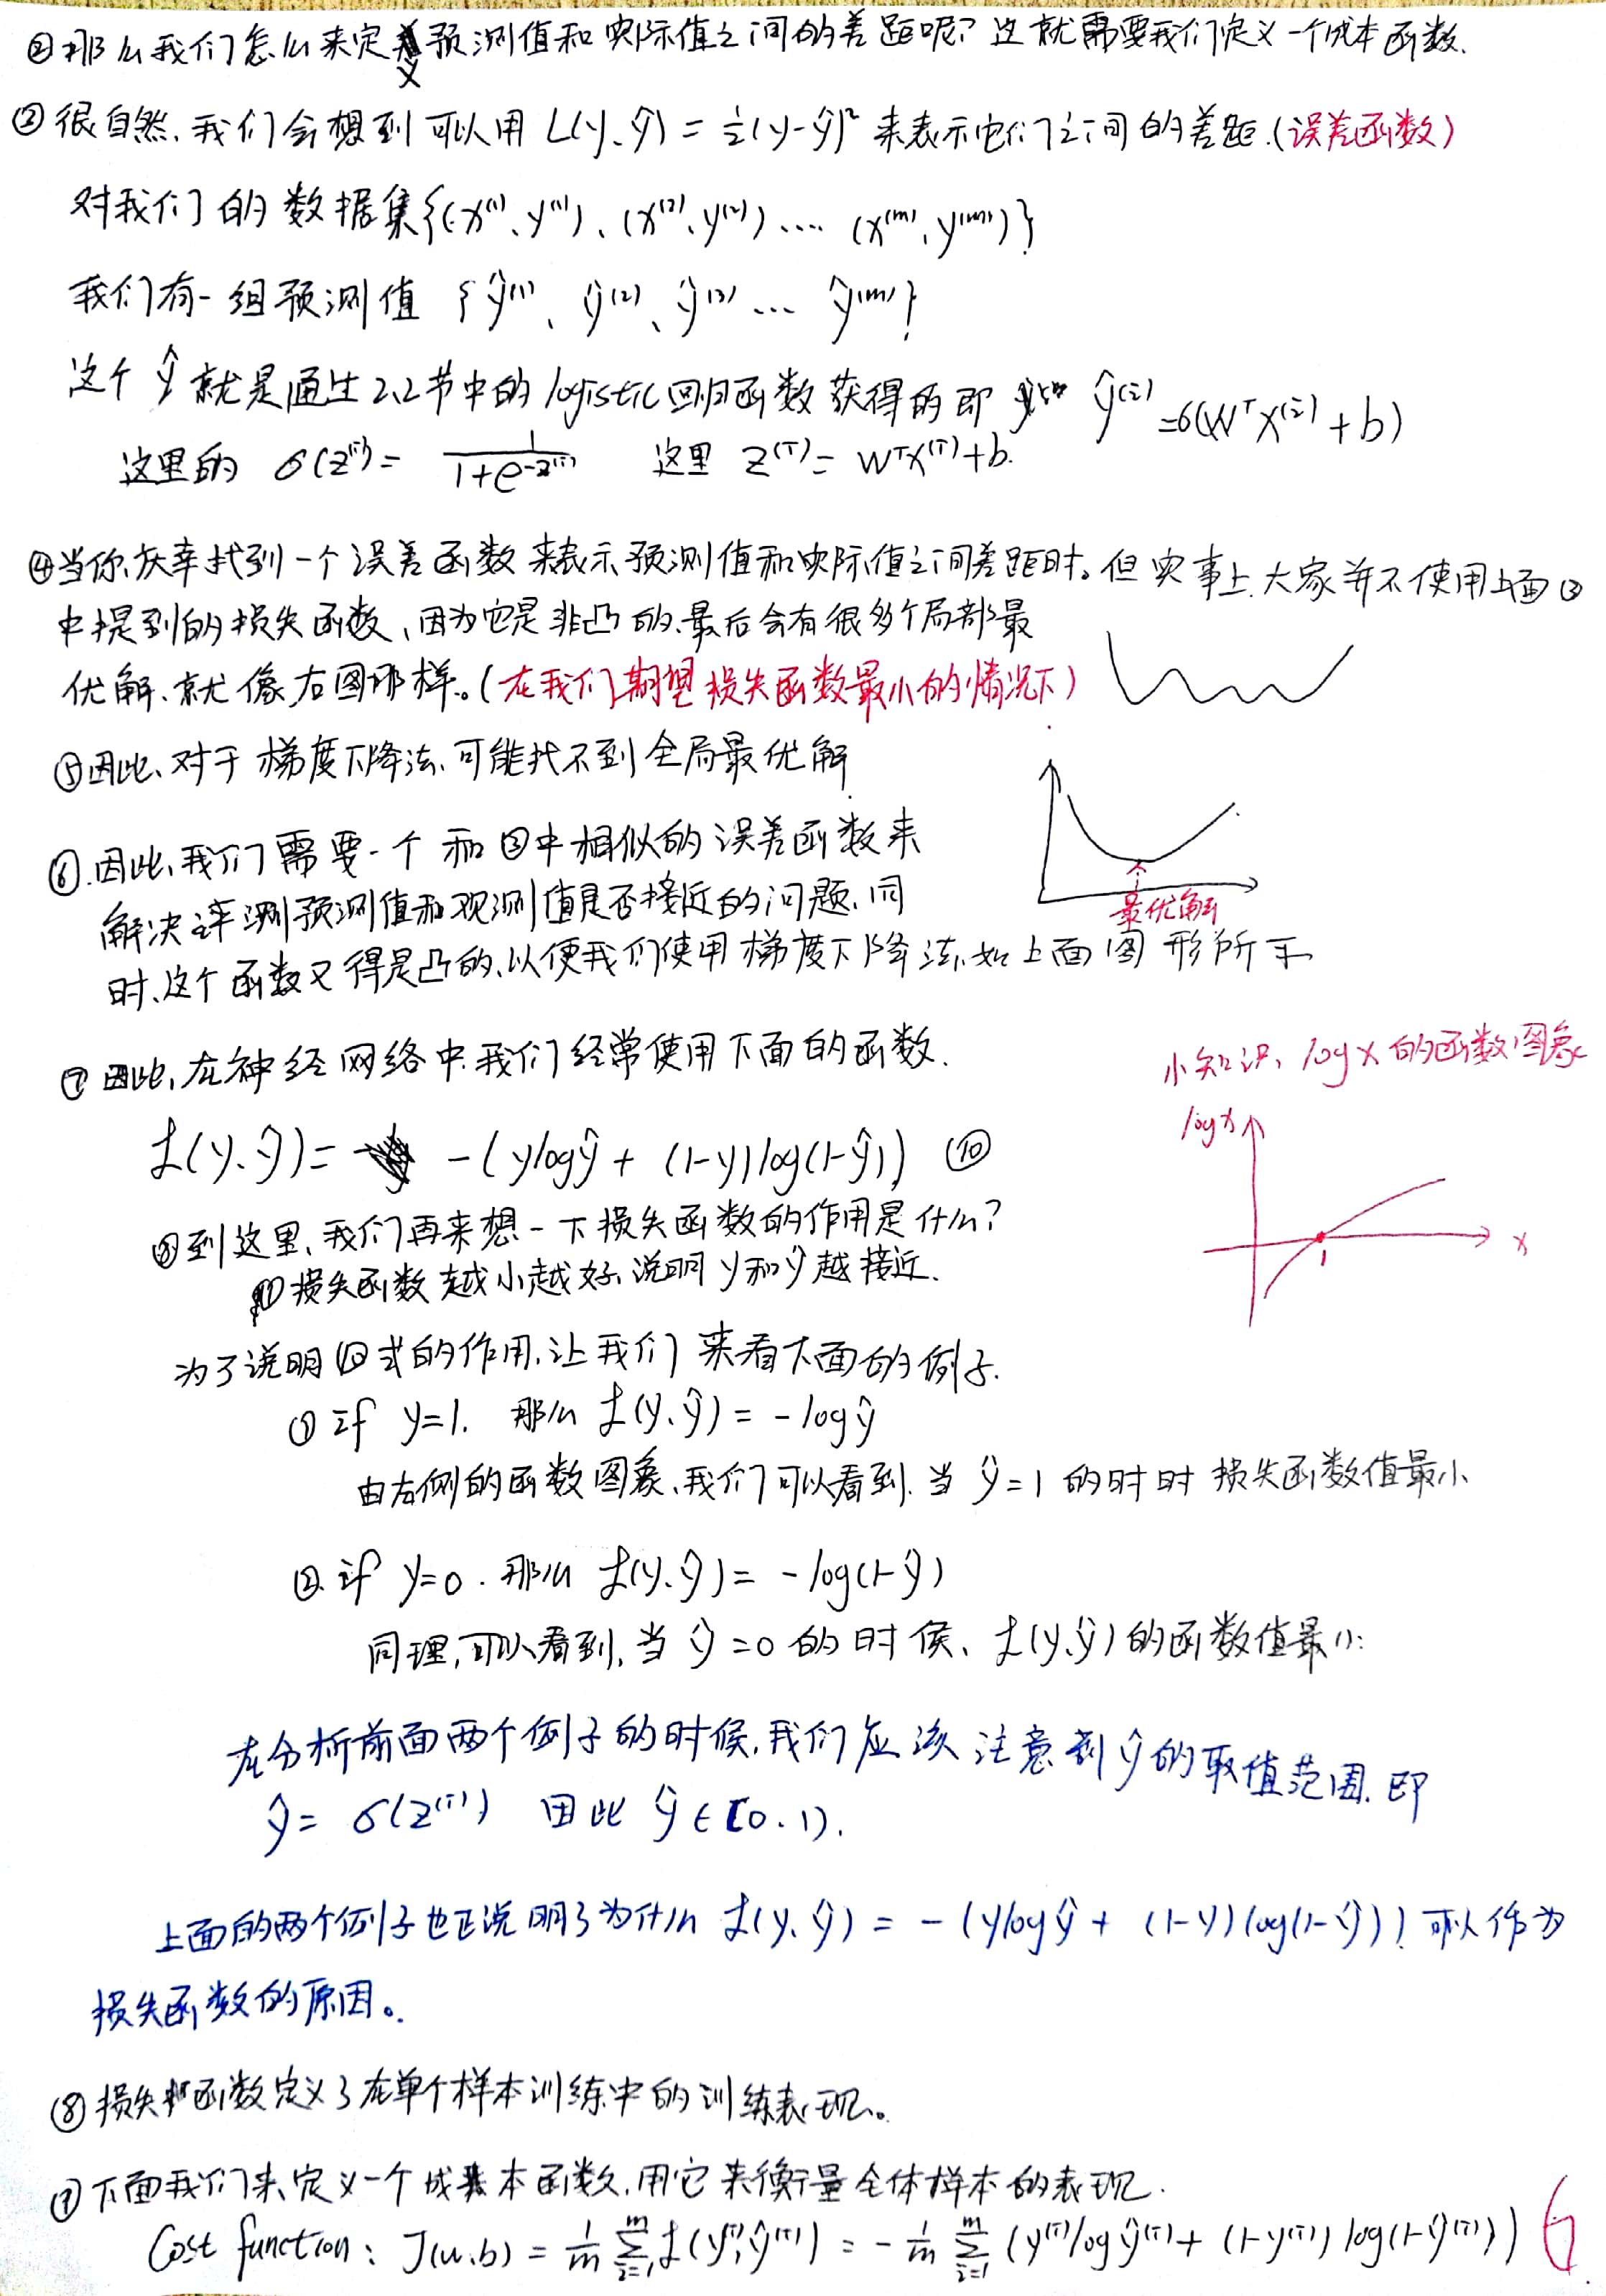 ②那么我们怎么来定义预测值和实际值之间的差距呢?这就需要我们定义一个成本函数.
③很自然、我们会想到可以用 L(y、ŷ) = ½(y-ŷ)² 来表示它们之间的差距.(误差函数)
对我们的数据集{(x⁽¹⁾、y⁽¹⁾)、(x⁽²⁾、y⁽²⁾).... (x⁽ᵐ⁾、y⁽ᵐ⁾)}
我们有一组预测值 {ŷ⁽¹⁾、ŷ⁽²⁾、ŷ⁽³⁾... ŷ⁽ᵐ⁾}
这个 ŷ 就是通过2.2节中的logistic回归函数获得的即 ŷ⁽ⁱ⁾=σ(WᵀX⁽ⁱ⁾+b)
这里的 σ(z⁽ⁱ⁾) = 1/(1+e^(-z⁽ⁱ⁾)) 这里 z⁽ⁱ⁾= Wᵀx⁽ⁱ⁾+b.
④当你庆幸找到一个误差函数来表示预测值和实际值之间差距时。但实事上.大家并不使用上面③
中提到的损失函数、因为它是非凸的.最后会有很多个局部最
优解、就像右图那样。(在我们期望损失函数最小的情况下)
⑤因此、对于梯度下降法、可能找不到全局最优解.
⑥.因此,我们需要一个和③中相似的误差函数来
解决评测预测值和观测值是否接近的问题、同
时、这个函数又得是凸的、以便我们使用梯度下降法.如上面图形所示
最优解
⑦因此,在神经网络中.我们经常使用下面的函数.
小知识、logx的函数图象
logx
x
1
ℒ(y、ŷ)= -(ylogŷ + (1-y)log(1-ŷ)) ⑩
⑧到这里、我们再来想一下损失函数的作用是什么?
①损失函数越小越好.说明y和ŷ越接近.
为了说明⑩式的作用,让我们来看下面的例子.
①if y=1. 那么 ℒ(y、ŷ) = -logŷ
由右侧的函数图象、我们可以看到.当 ŷ=1 的时时 损失函数值最小
②.if y=0. 那么 ℒ(y.ŷ)= -log(1-ŷ)
同理,可以看到,当 ŷ=0 的时候、ℒ(y、ŷ)的函数值最小.
在分析前面两个例子的时候,我们应该注意到ŷ的取值范围.即
ŷ= σ(z⁽ⁱ⁾) 因此 ŷ∈[0.1).
上面的两个例子也正说明了为什么 ℒ(y、ŷ) = -(ylogŷ + (1-y)log(1-ŷ)) 可以作为
损失函数的原因。
⑧损失函数定义了在单个样本训练中的训练表现。
⑨下面我们来定义一个成本函数.用它来衡量全体样本的表现.
Cost function: J(w.b) = 1/m Σᵢ₌₁ᵐ ℒ(y⁽ⁱ⁾,ŷ⁽ⁱ⁾) = -1/m Σᵢ₌₁ᵐ (y⁽ⁱ⁾logŷ⁽ⁱ⁾+ (1-y⁽ⁱ⁾)log(1-ŷ⁽ⁱ⁾))